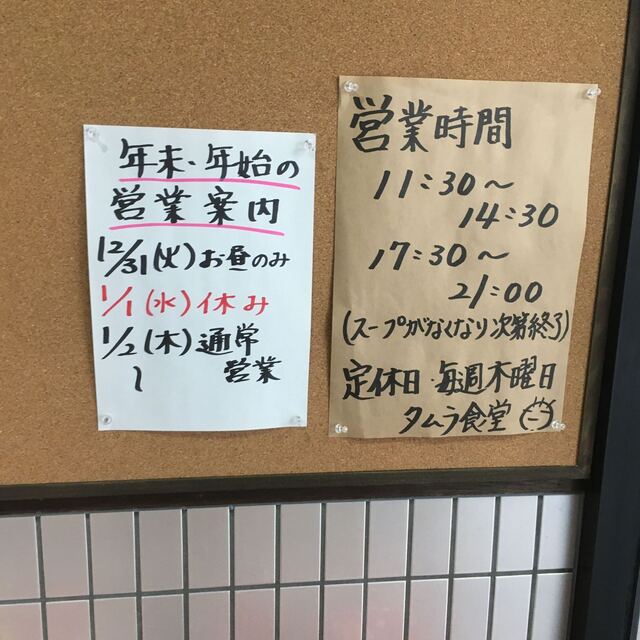 年末・年始の
営業案内
12/31(火)お昼のみ
1/1(水)休み
1/2(木)通常
〜 営業
営業時間
11:30〜
14:30
17:30〜
21:00
(スープがなくなり次第終了)
定休日・毎週木曜日
タムラ食堂